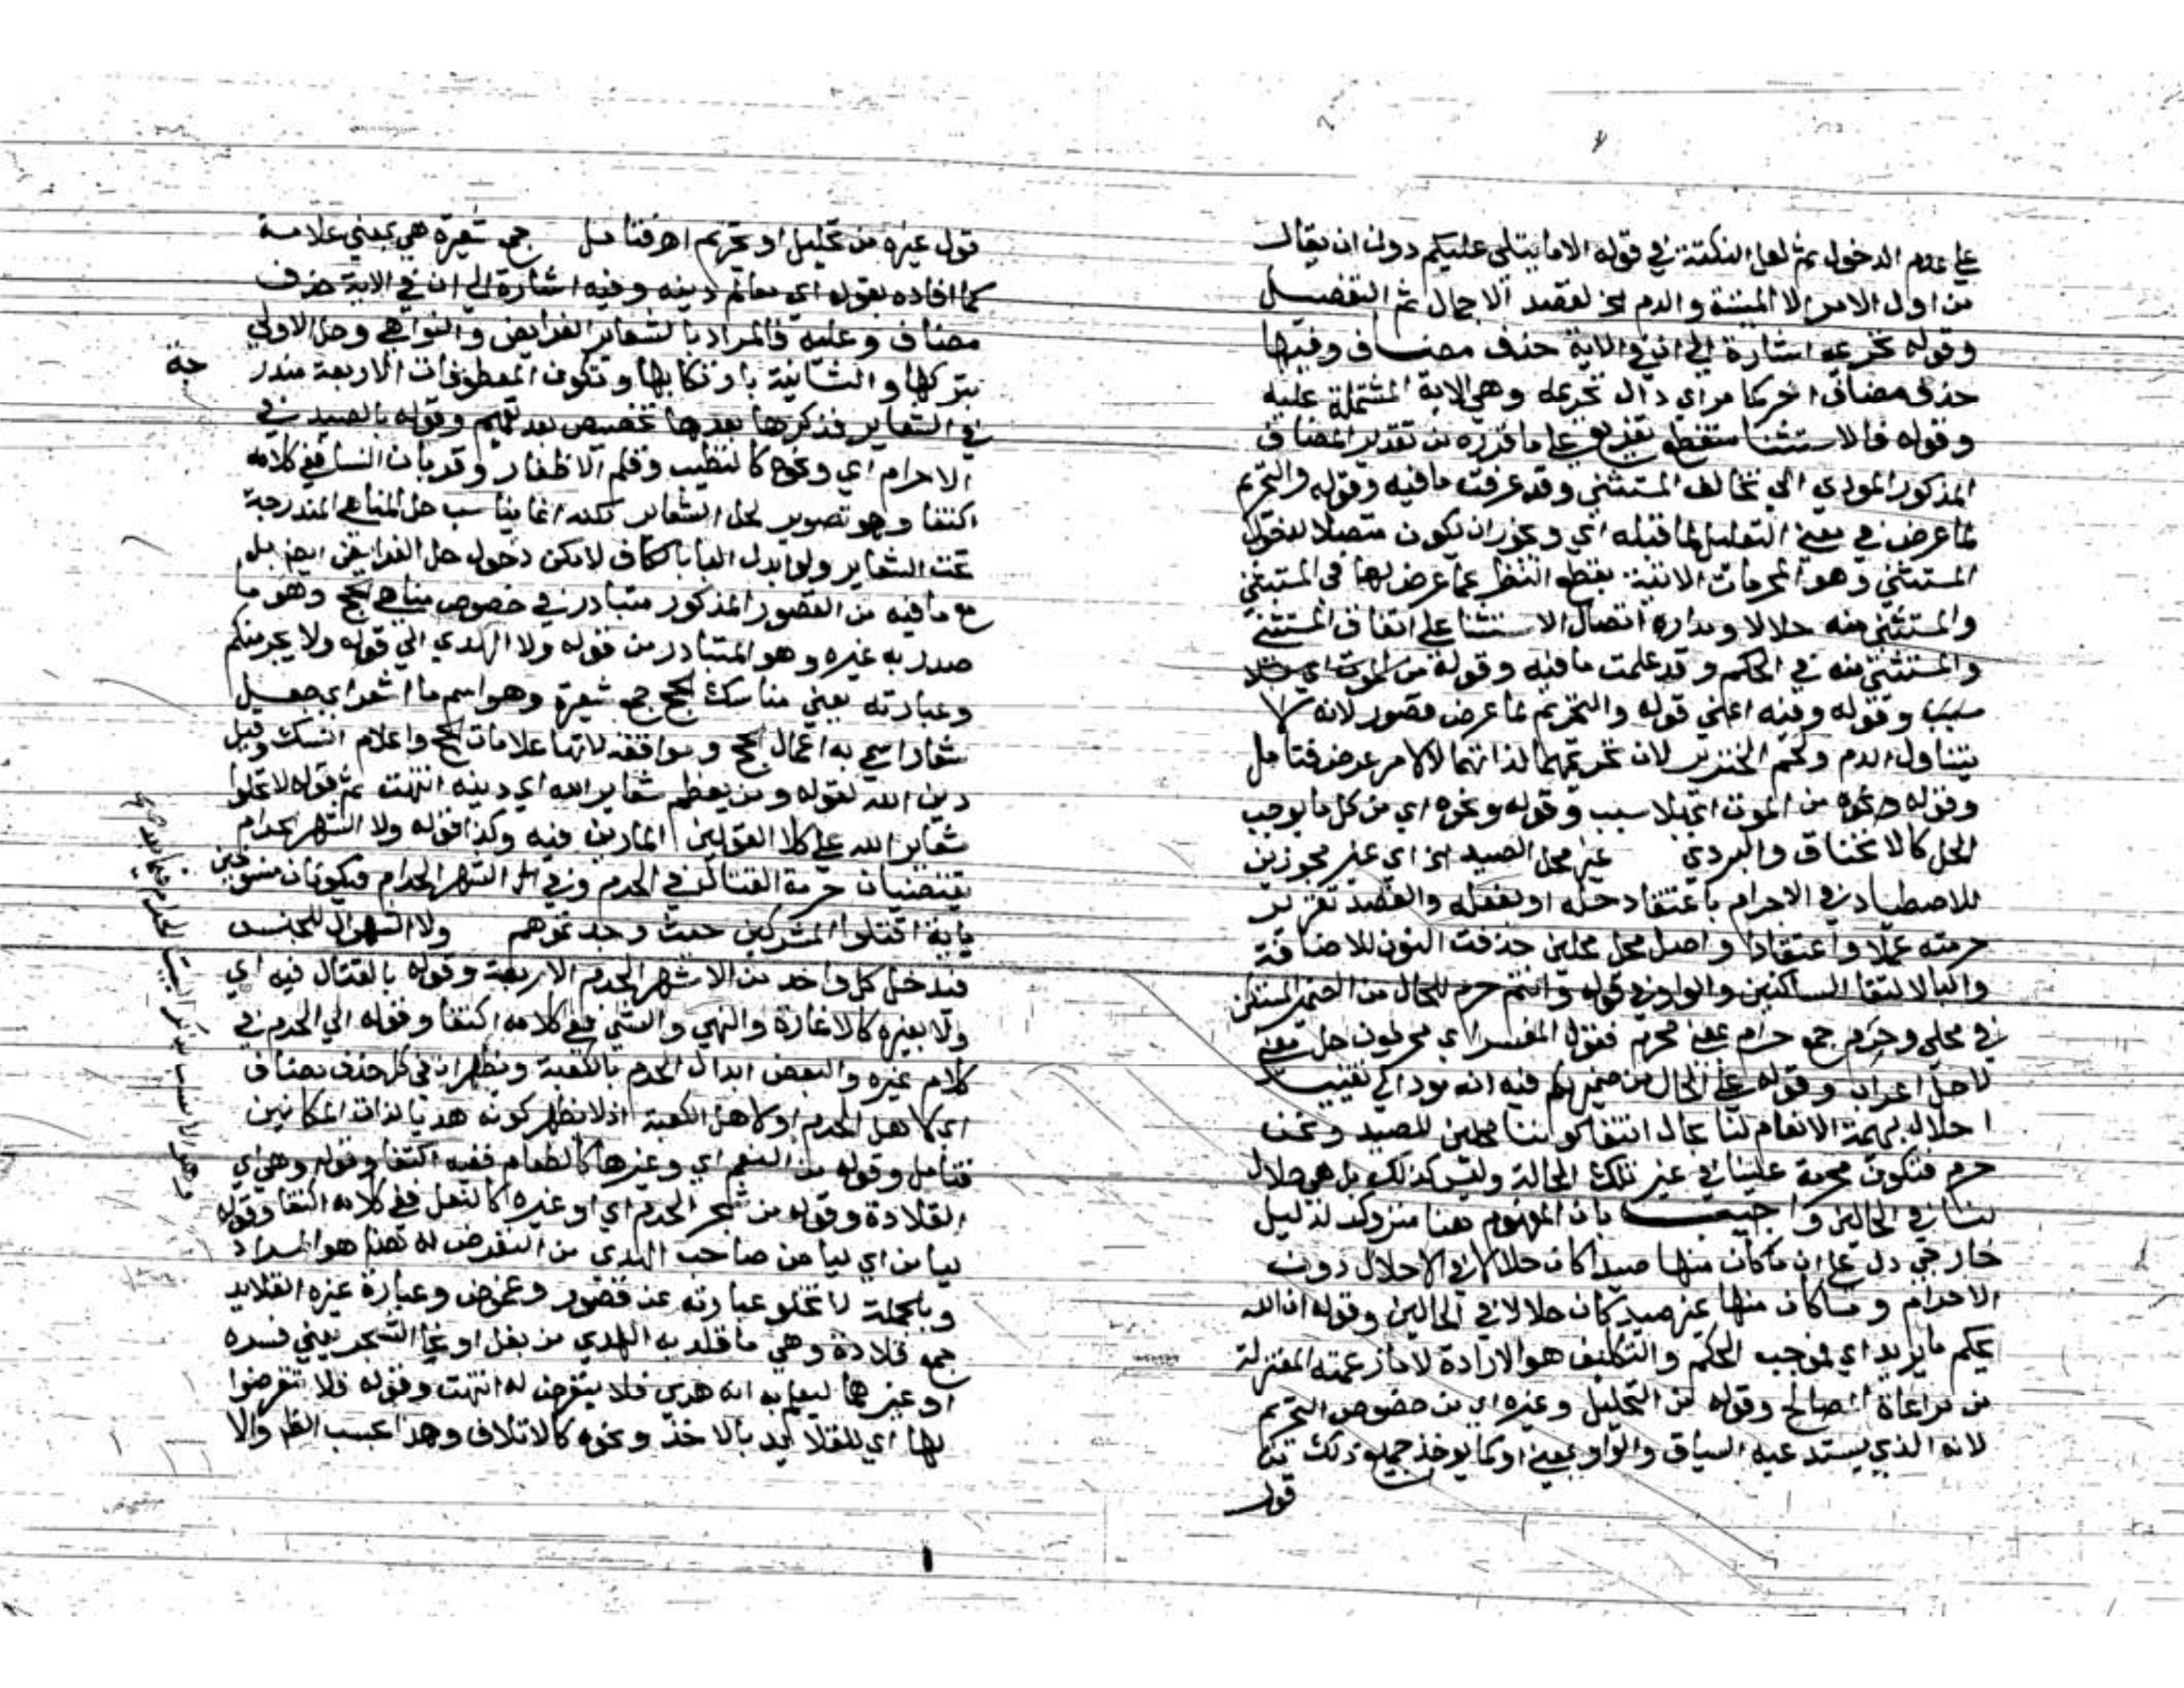 على عدم الدخول ثم لعل النكتة في قوله الا ما يتلى عليكم دون ان يقال
من اول الامر الا الميتة والدم الخ لقصد الاجمال ثم التفصيل
وقوله تحريمه اشارة الى ان في الاية حذف مضاف وفيها
حذف مضاف اخر كما مر اي دال تحريمه وهي الاية المشتملة عليه
وقوله فالاستثنا منقطع تفريع على ما قرره من تقدير المضاف
المذكور المودي الى تخالف المستثنى وقد عرفت ما فيه وقوله والتحريم
لما عرض في معنى التعليل لما قبله اي ويجوز ان يكون متصلا لدخول
المستثنى وهو المحرمات الاتية بقطع النظر عما عرض لها في المستثنى
والمستثنى منه حلالا ومداره اتصال الاستثنا على اتفاق المستثنى
والمستثنى منه في الحكم وقد علمت ما فيه وقوله من الموت اي بلا
سبب وقوله وفيه اعني قوله والتحريم لما عرض قصور لانه لا
يتناول الدم ولحم الخنزير لان تحريمهما لذاتهما لا لامر عرض فتامل
وقوله ونحوه من الموت اي بلا سبب وقوله ونحوه اي من كل ما يوجب
الحل كالاختناق والبردي غير محلي الصيد الخ اي غير مجوزين
للاصطياد في الاحرام باعتقاد حله او بفعله والقصد تقرير
حرمته عملا واعتقادا واصل محلي محلين حذفت النون للاضافة
واليا لالتقا الساكنين والواو في قوله وانتم حرم للحال من الضمير المستكن
في محلي وحرم جمع حرام بمعنى محرم فقول المفسر اي محرمون حل معنى
لا حل اعراب وقوله على الحال من ضمير لكم فيه انه يودي الى تقييد
احلال بهيمة الانعام لنا بحال انتفا كوننا محلين للصيد ونحن
حرم فتكون محرمة علينا في غير تلك الحالة وليس كذلك بل هي حلال
لنا في الحالين واجيب بان المفهوم هنا متروك لدليل
خارجي دل على ان ما كان منها صيدا كان حلالا في الاحلال دون
الاحرام وما كان منها غير صيد كان حلالا في الحالين وقوله ان الله
يحكم ما يريد اي فموجب الحكم والتكليف هو الارادة لا ما زعمته المعتزلة
من مراعاة المصالح وقوله من التحليل وغيره اي من خصوص التحريم
لانه الذي يستدعيه السياق والواو بمعنى او كما يوخذ جميع ذلك من
قول
قول غيره من تحليل او تحريم اهـ فتامل جمع شعيرة هي بمعنى علامة
كما افاده بقوله اي معالم دينه وفيه اشارة الى ان في الاية حذف
مضاف وعليه فالمراد بالشعاير الفرايض والنواهي وحل الاولى
بتركها والثانية بارتكابها وتكون المعطوفات الاربعة مندر
جة
في الشعاير فذكرها بعدها تخصيص بعد تعميم وقوله بالصيد في
الاحرام اي ونحوه كالتطيب وقلم الاظفار وقربان النسا ففي كلامه
اكتفا وهو تصوير لحل الشعاير لكنه انما يناسب حل المناهي المندرجة
تحت الشعاير ولو ابدل البا بالكاف لامكن دخول حل الفرايض ايضا بل
مع ما فيه من القصور المذكور متبادر في خصوص مناهي الحج وهو ما
صدر به غيره وهو المتبادر من قوله ولا الهدي الى قوله ولا يجرمنكم
وعبارته يعني مناسك الحج جمع شعيرة وهو اسم ما اشعر اي جعل
شعارا سمي به اعمال الحج ومواقفه لانها علامات الحج واعلام النسك وقيل
دين الله لقوله ومن يعظم شعاير الله اي دينه انتهت ثم قوله لا تحلوا
شعاير الله على كلا القولين المارين فيه وكذا قوله ولا الشهر الحرام
يقتضيان حرمة القتال في الحرم وفي الشهر الحرام فيكونان منسوخين
باية اقتلوا المشركين حيث وجدتموهم ولا الشهر ال للجنس
فيدخل كل واحد من الاشهر الحرم الاربعة وقوله بالقتال فيه اي
ولا بغيره كالاغارة والنهي والسبي ففي كلامه اكتفا وقوله الى الحرم في
كلام غيره والبعض ابدال الحرم بالكعبة ويظهر ان في كل حذف مضاف
اي كاهل الحرم او كاهل الكعبة اذ لا يظهر كونه هديا لذات المكانين
فتامل وقوله من النعم اي وغيرها كالطعام ففيه اكتفا وقوله وهي اي
القلادة وقوله من شجر الحرم اي او غيره كالنعل ففي كلامه اكتفا وقوله
ليامن اي ليامن صاحب الهدي من التعرض له هذا هو المراد
وبالجملة لا تخلو عبارته عن قصور وغموض وعبارة غيره القلايد
جمع قلادة وهي ما قلد به الهدي من نعل او لحا الشجر يعني قشره
او غيرهما ليعلم به انه هدي فلا يتعرض له انتهت وقوله فلا تتعرضوا
لها اي للقلايد بالاخذ ونحوه كالاتلاف وهذا بحسب الظر والا